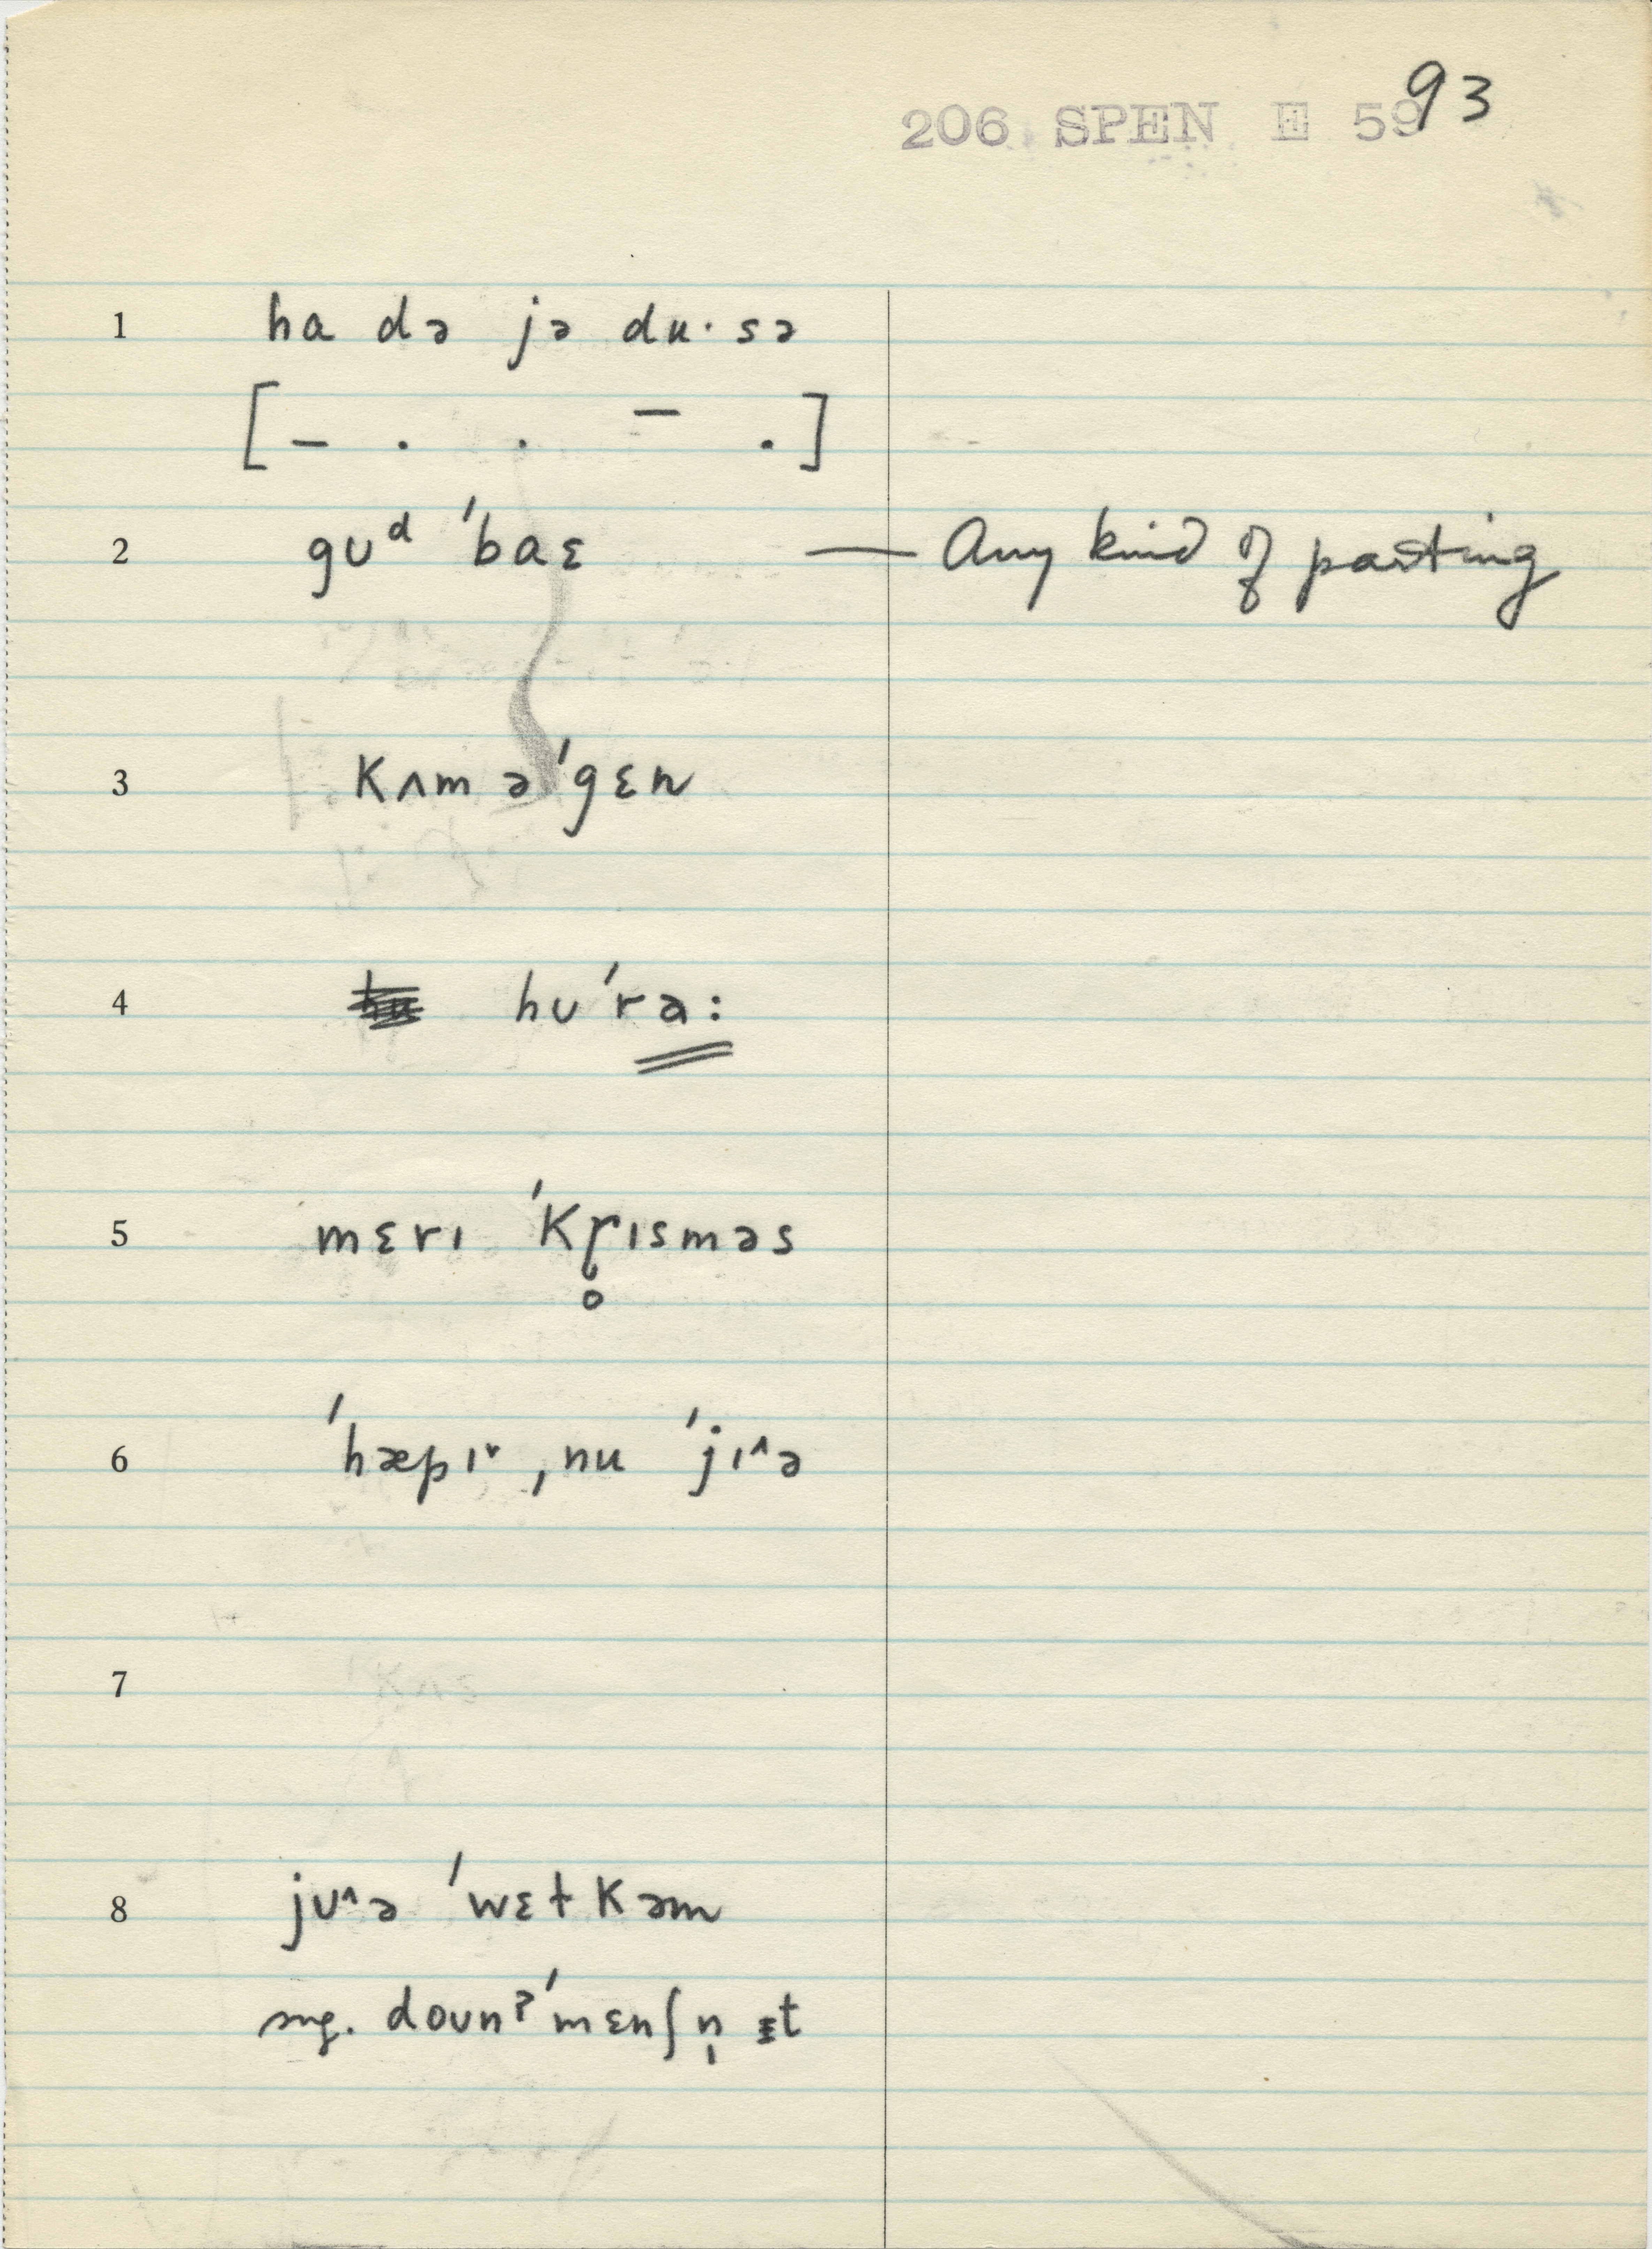 93
206 SPEN E 59
1 ha də jə du· sə
[ – . . ¯ . ]
2 guᵈ ˈbaɛ — Any kind of parting
3 kʌm əˈgɛn
4 hʊˈra:
5 mɛrɪ ˈkɽ̊ɪsməs
6 ˈhæpɪ˅ ˌnu ˈjɪ^ə
7
8 jʊ^ə ˈwɛɫkəm
sug. doʊnʔˈmɛnʃn̩ ɪt